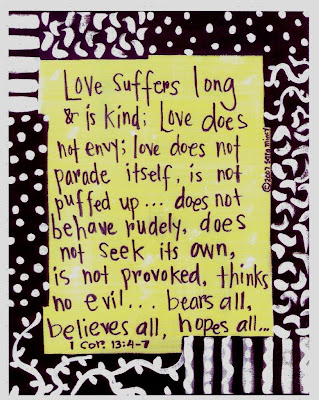 Love Suffers long
& is kind; Love does
not envy; love does not
parade itself, is not
puffed up... does not
behave rudely, does
not seek its own,
is not provoked, thinks
no evil... bears all,
believes all, hopes all...
1 Cor. 13:4-7